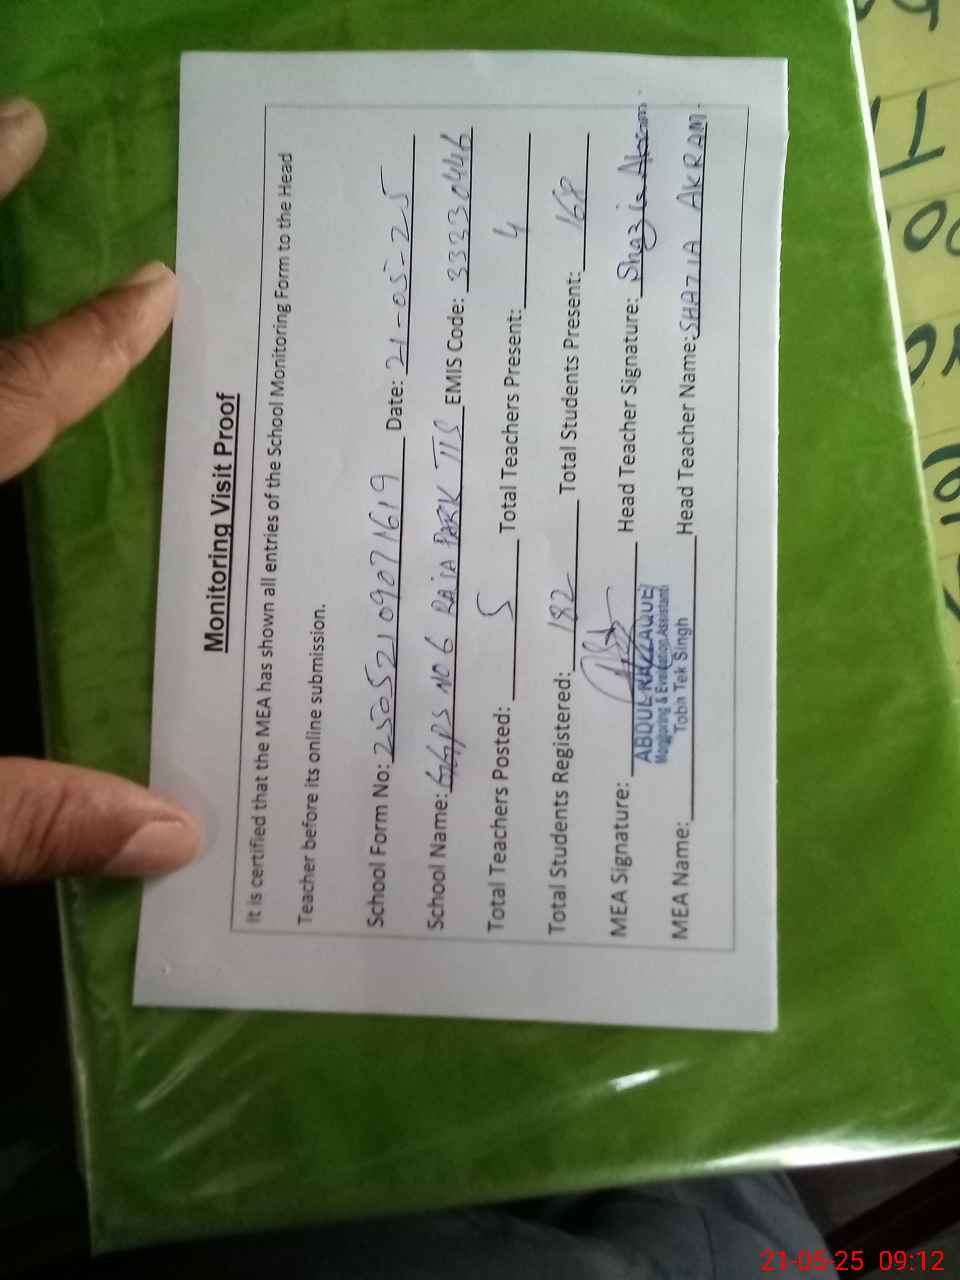 Monitoring Visit Proof
It is certified that the MEA has shown all entries of the School Monitoring Form to the Head
Teacher before its online submission.
School Form No: 25052109071619 Date: 21-05-25
School Name: GGPS NO 6 RAJA PARK TTS EMIS Code: 33330446
Total Teachers Posted: 5 Total Teachers Present: 4
Total Students Registered: 182 Total Students Present: 168
MEA Signature: Head Teacher Signature: Shazia Akram.
ABDUL RAZZAQUE
Monitoring & Evaluation Assistant
Toba Tek Singh
MEA Name: Head Teacher Name: SHAZIA AKRAM.
21-05-25 09:12